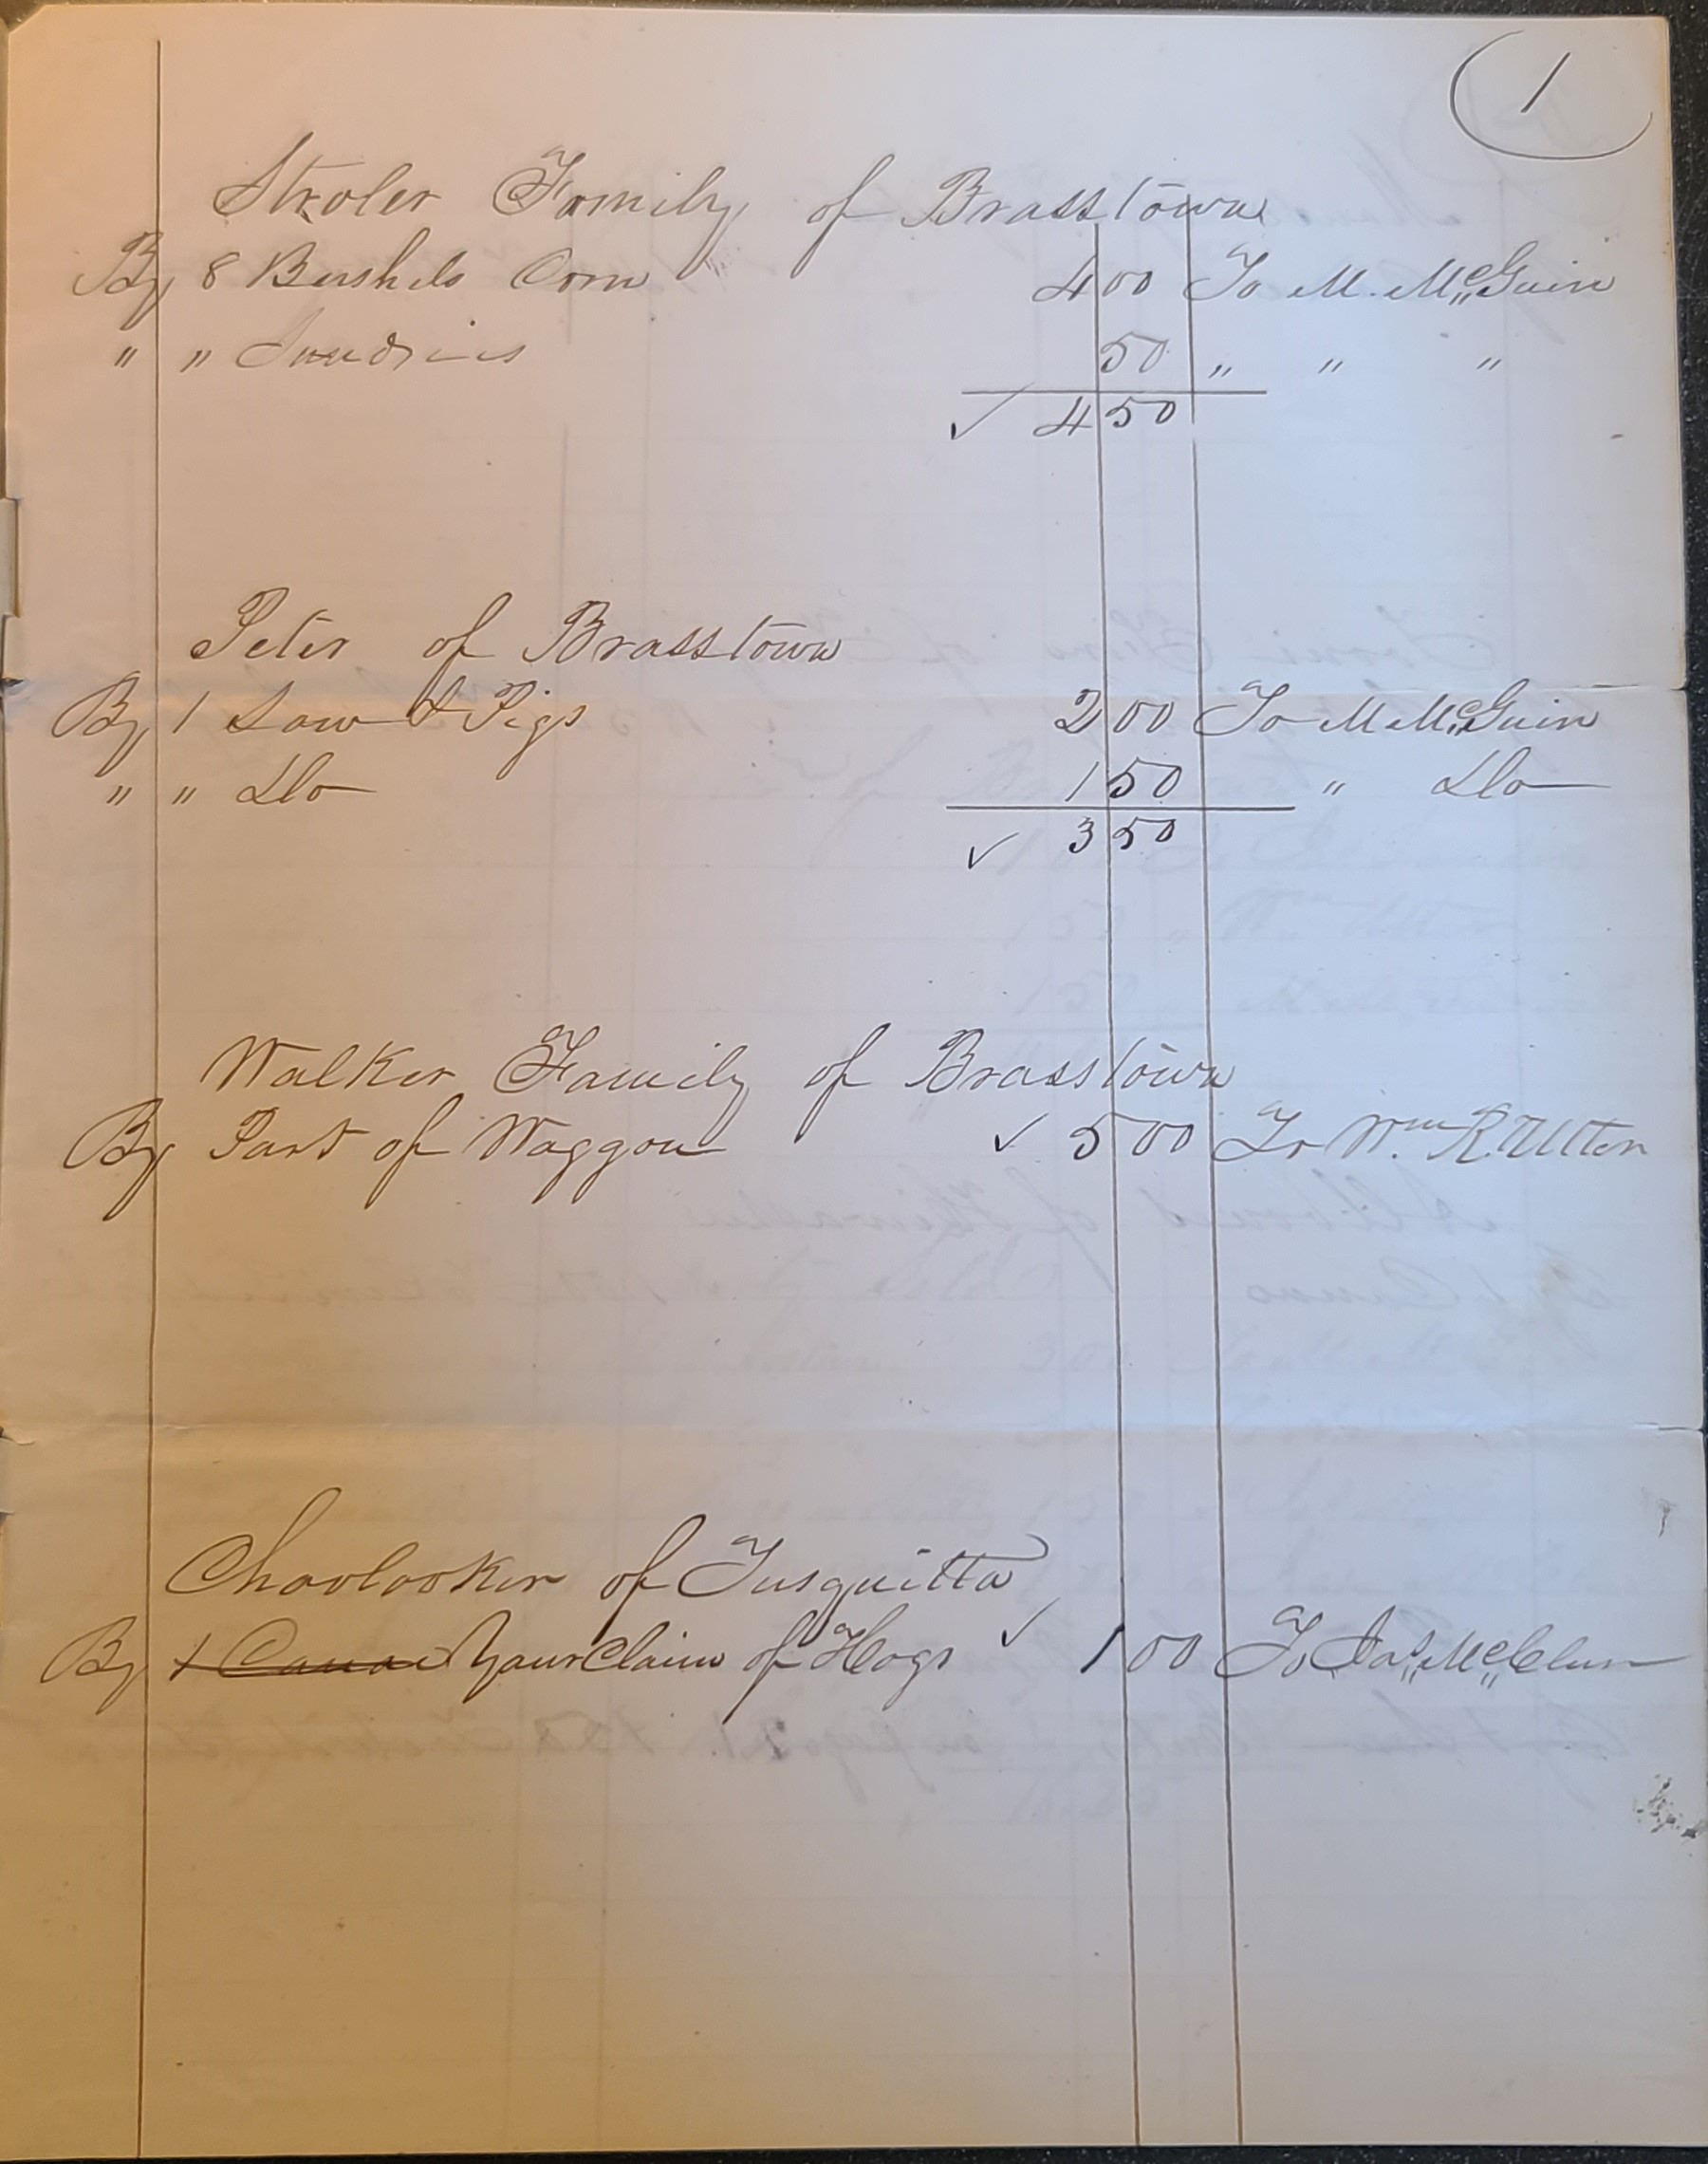 1
Stroler Family of Brasstown
By 8 Bushels Corn 4 00 To M. McGuin
" " Sundries 50 " " "
✓ 4 50
Peter of Brasstown
By 1 Sow & Pigs 2 00 To M McGuin
" " Do 1 50 " Do
✓ 3 50
Walker Family of Brasstown
By Part of Waggon ✓ 5 00 To Wm. R. Utter
Choolooker of Tusquitta
By 1 Canoe Your Claim of Hogs ✓ 1 00 To Jas McClure